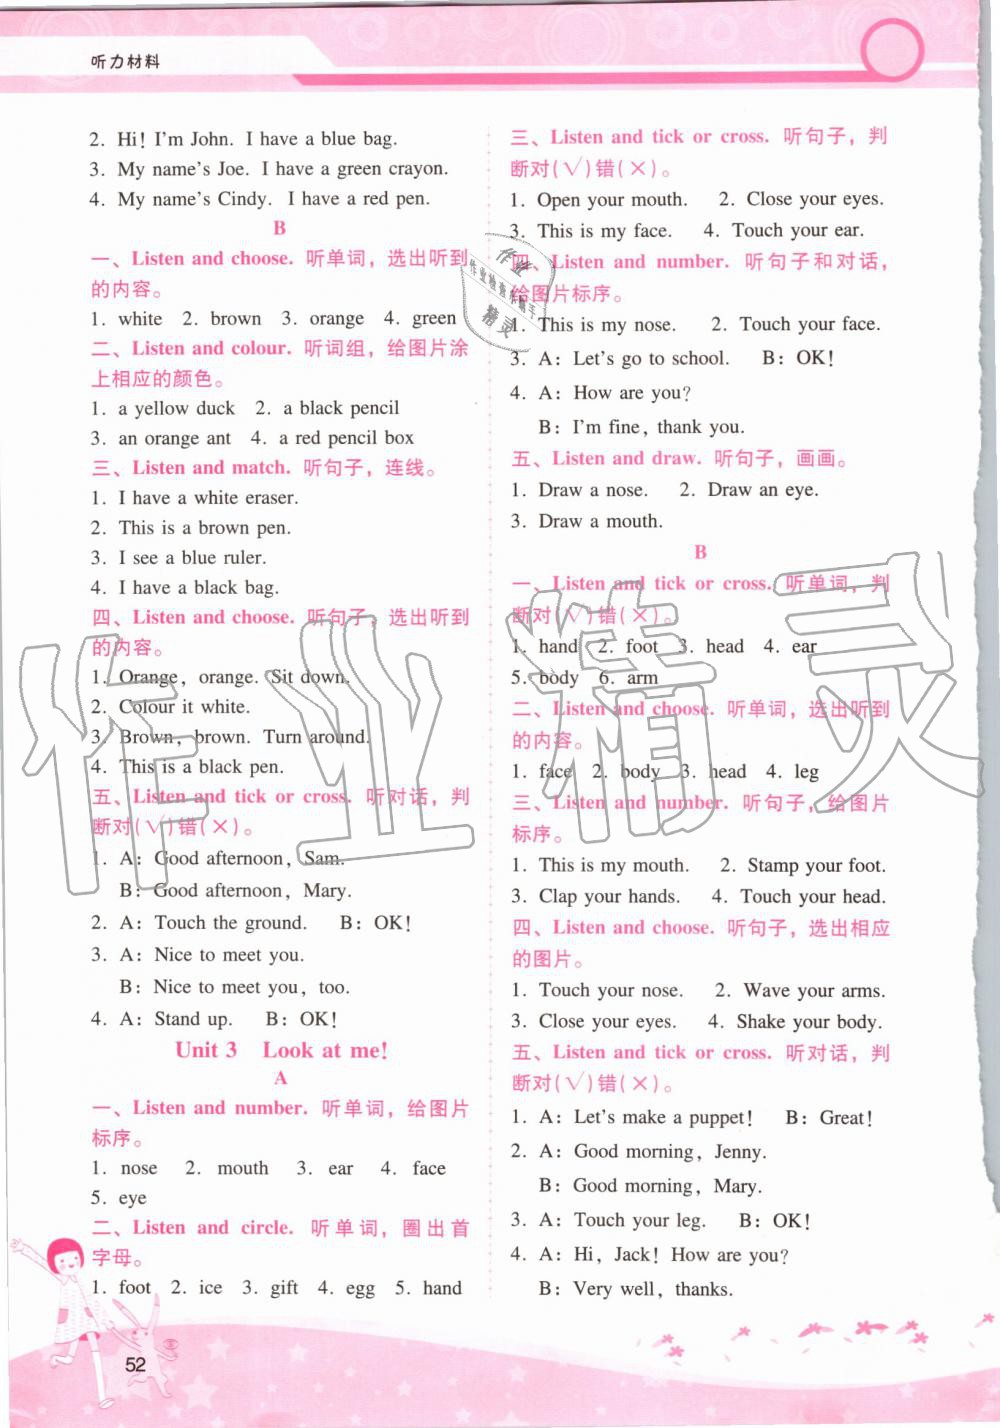 听力材料
2. Hi! I'm John. I have a blue bag.
3. My name's Joe. I have a green crayon.
4. My name's Cindy. I have a red pen.
B
一、Listen and choose. 听单词，选出听到
的内容。
1. white 2. brown 3. orange 4. green
二、Listen and colour. 听词组，给图片涂
上相应的颜色。
1. a yellow duck 2. a black pencil
3. an orange ant 4. a red pencil box
三、Listen and match. 听句子，连线。
1. I have a white eraser.
2. This is a brown pen.
3. I see a blue ruler.
4. I have a black bag.
四、Listen and choose. 听句子，选出听到
的内容。
1. Orange, orange. Sit down.
2. Colour it white.
3. Brown, brown. Turn around.
4. This is a black pen.
五、Listen and tick or cross. 听对话，判
断对(√)错(×)。
1. A: Good afternoon, Sam.
B: Good afternoon, Mary.
2. A: Touch the ground. B: OK!
3. A: Nice to meet you.
B: Nice to meet you, too.
4. A: Stand up. B: OK!
Unit 3 Look at me!
A
一、Listen and number. 听单词，给图片
标序。
1. nose 2. mouth 3. ear 4. face
5. eye
二、Listen and circle. 听单词，圈出首
字母。
1. foot 2. ice 3. gift 4. egg 5. hand
三、Listen and tick or cross. 听句子，判
断对(√)错(×)。
1. Open your mouth. 2. Close your eyes.
3. This is my face. 4. Touch your ear.
四、Listen and number. 听句子和对话，
给图片标序。
1. This is my nose. 2. Touch your face.
3. A: Let's go to school. B: OK!
4. A: How are you?
B: I'm fine, thank you.
五、Listen and draw. 听句子，画画。
1. Draw a nose. 2. Draw an eye.
3. Draw a mouth.
B
一、Listen and tick or cross. 听单词，判
断对(√)错(×)。
1. hand 2. foot 3. head 4. ear
5. body 6. arm
二、Listen and choose. 听单词，选出听到
的内容。
1. face 2. body 3. head 4. leg
三、Listen and number. 听句子，给图片
标序。
1. This is my mouth. 2. Stamp your foot.
3. Clap your hands. 4. Touch your head.
四、Listen and choose. 听句子，选出相应
的图片。
1. Touch your nose. 2. Wave your arms.
3. Close your eyes. 4. Shake your body.
五、Listen and tick or cross. 听对话，判
断对(√)错(×)。
1. A: Let's make a puppet! B: Great!
2. A: Good morning, Jenny.
B: Good morning, Mary.
3. A: Touch your leg. B: OK!
4. A: Hi, Jack! How are you?
B: Very well, thanks.
52
作业精灵
作业
精灵